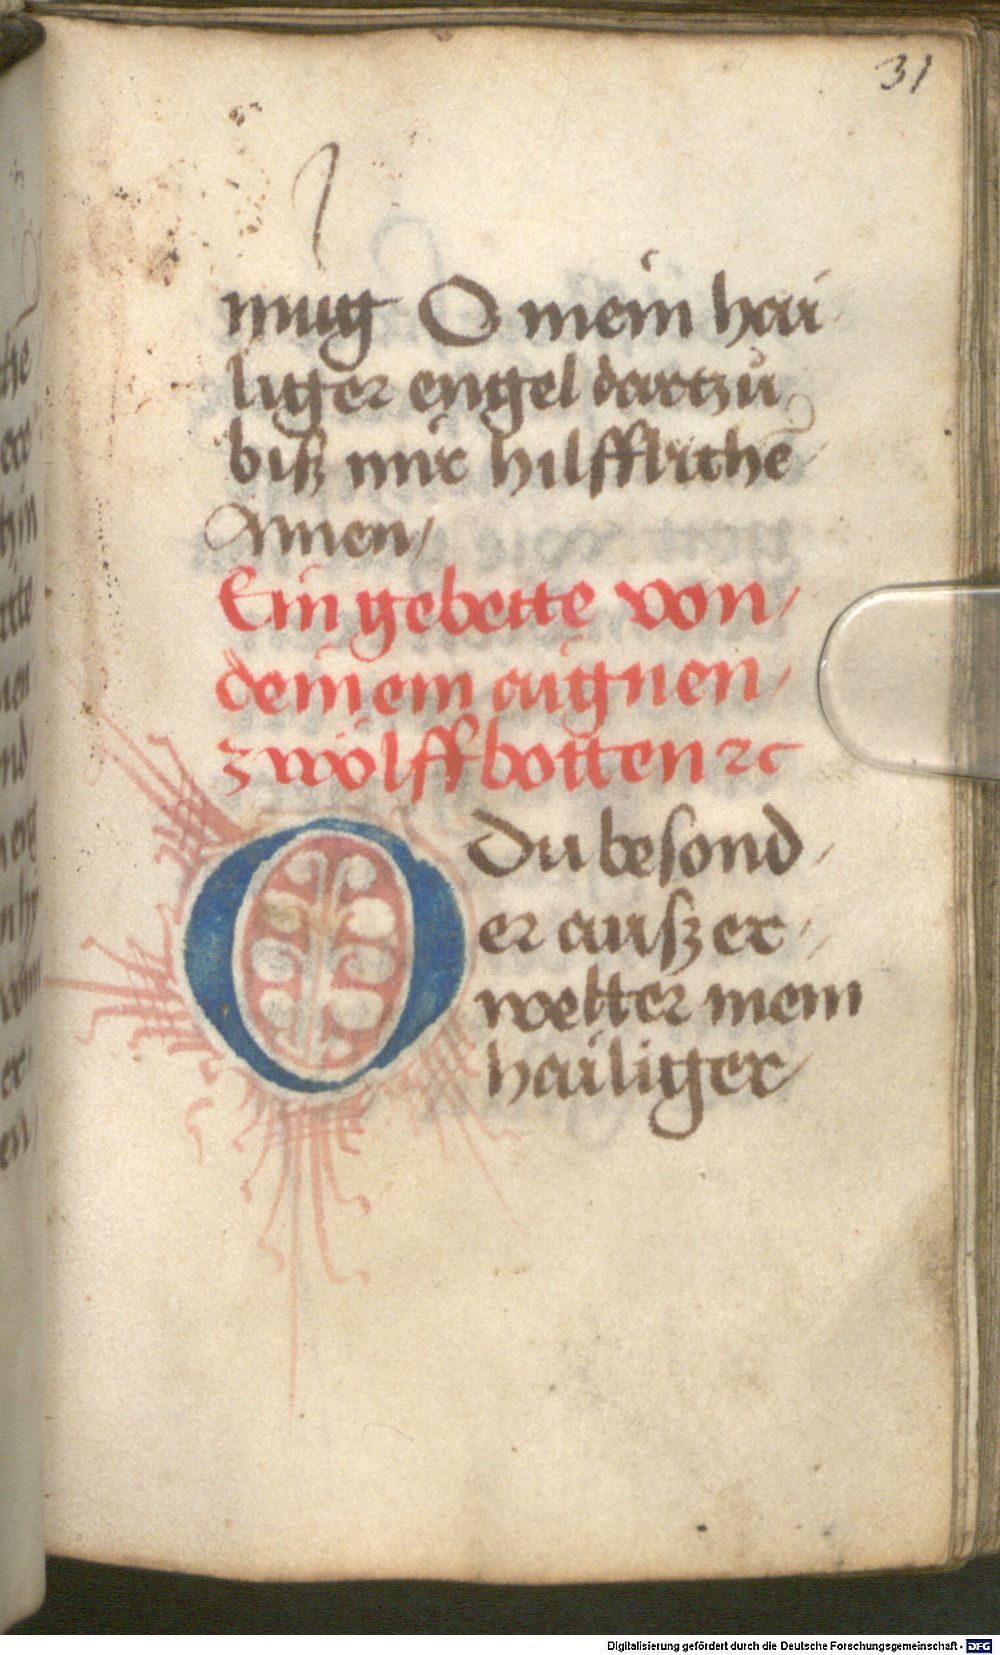 31
mug O mein hai
liger engel dartzů
biß mir hilfflichē
Amen/
Ein gebette von/
deinem aignen/
zwölffbotten ꝛc
O Du besond/
er außer//
welter mein
hailiger
Digitalisierung gefördert durch die Deutsche Forschungsgemeinschaft - DFG